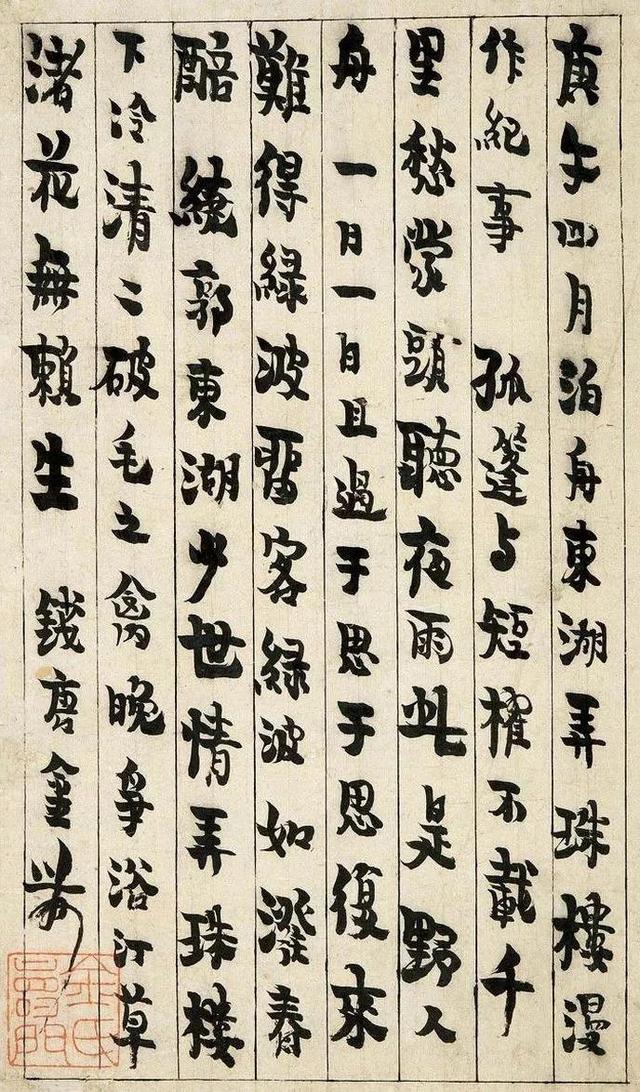 庚午四月泊舟東湖弄珠樓漫
作紀事 孤篷与短櫂不載千
里愁蒙頭聽夜雨此是野人
舟 一日一日且過于思于思復來
難得綠波留客綠波如潑春
醅 繞郭東湖少世情弄珠樓
下冷清〻破毛之禽晚爭浴汀草
渚花無賴生 錢唐金農